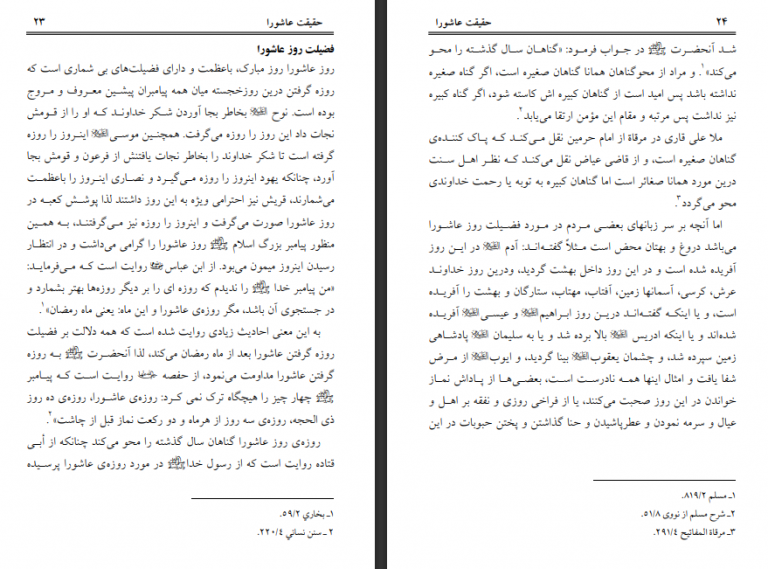 حقیقت عاشورا ۲۳
فضیلت روز عاشورا
روز عاشورا روز مبارک، باعظمت و دارای فضیلت‌های بی شماری است که
روزه گرفتن درین روزخجسته میان همه پیامبران پیشین معروف و مروج
بوده است. نوح بخاطر بجا آوردن شکر خداوند که او را از قومش
نجات داد این روز را روزه می‌گرفت. همچنین موسی اینروز را روزه
گرفته است تا شکر خداوند را بخاطر نجات یافتنش از فرعون و قومش بجا
آورد، چنانکه یهود اینروز را روزه می‌گیرد و نصاری اینروز را باعظمت
می‌شمارند، قریش نیز احترامی ویژه به این روز داشتند لذا پوشش کعبه در
روز عاشورا صورت می‌گرفت و اینروز را روزه نیز می‌گرفتند، به همین
منظور پیامبر بزرگ اسلام ﷺ روز عاشورا را گرامی می‌داشت و در انتظار
رسیدن اینروز میمون می‌بود. از ابن عباس روایت است که می‌فرماید:
«من پیامبر خدا ﷺ را ندیدم که روزه ای را بر دیگر روزه‌ها بهتر بشمارد و
در جستجوی آن باشد، مگر روزه‌ی عاشورا و این ماه: یعنی ماه رمضان»۱.
به این معنی احادیث زیادی روایت شده است که همه دلالت بر فضیلت
روزه گرفتن عاشورا بعد از ماه رمضان می‌کند، لذا آنحضرت ﷺ به روزه
گرفتن عاشورا مداومت می‌نمود، از حفصه روایت است که پیامبر
ﷺ چهار چیز را هیچگاه ترک نمی کرد: روزه‌ی عاشورا، روزه‌ی ده روز
ذی الحجه، روزه‌ی سه روز از هرماه و دو رکعت نماز قبل از چاشت»۲.
روزه‌ی روز عاشورا گناهان سال گذشته را محو می‌کند چنانکه از أبی
قتاده روایت است که از رسول خدا ﷺ در مورد روزه‌ی عاشورا پرسیده
۱ـ بخاري ۵۹/۲.
۲ ـ سنن نسائي ۲۲۰/۴.
۲۴ حقیقت عاشورا
شد آنحضرت ﷺ در جواب فرمود: «گناهان سال گذشته را محو
می‌کند»۱. و مراد از محوگناهان همانا گناهان صغیره است، اگر گناه صغیره
نداشته باشد پس امید است از گناهان کبیره اش کاسته شود، اگر گناه کبیره
نیز نداشت پس مرتبه و مقام این مؤمن ارتقا می‌یابد۲.
ملا علی قاری در مرقاة از امام حرمین نقل می‌کند که پاک کننده‌ی
گناهان صغیره است، و از قاضی عیاض نقل می‌کند که نظر اهل سنت
درین مورد همانا صغائر است اما گناهان کبیره به توبه یا رحمت خداوندی
محو می‌گردد۳.
اما آنچه بر سر زبانهای بعضی مردم در مورد فضیلت روز عاشورا
می‌باشد دروغ و بهتان محض است مثلاً گفته‌اند: آدم در این روز
آفریده شده است و در این روز داخل بهشت گردید، ودرین روز خداوند
عرش، کرسی، آسمانها زمین، آفتاب، مهتاب، ستارگان و بهشت را آفریده
است، و یا اینکه گفته‌اند درین روز ابراهیم و عیسی آفریده
شده‌اند و یا اینکه ادریس بالا برده شد و یا به سلیمان پادشاهی
زمین سپرده شد، و چشمان یعقوب بینا گردید، و ایوب از مرض
شفا یافت و امثال اینها همه نادرست است، بعضی‌ها از پاداش نماز
خواندن در این روز صحبت می‌کنند، یا از فراخی روزی و نفقه بر اهل و
عیال و سرمه نمودن و عطرپاشیدن و حنا گذاشتن و پختن حبوبات در این
۱ـ مسلم ۸۱۹/۲.
۲ـ شرح مسلم از نووی ۵۱/۸.
۳ـ مرقاة المفاتیح ۲۹۱/۴.